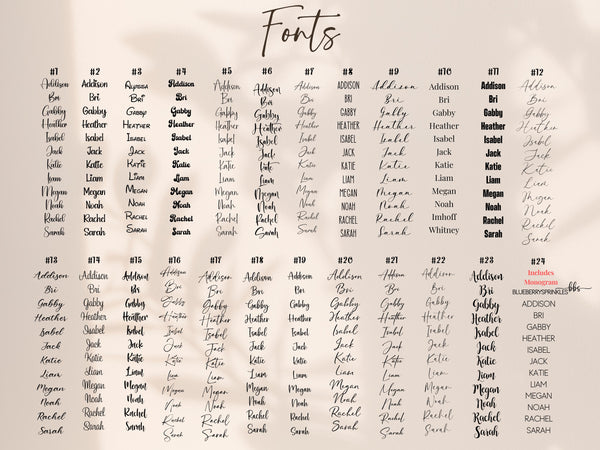 Fonts
#1
Addison
Bri
Gabby
Heather
Isabel
Jack
Katie
Liam
Megan
Noah
Rachel
Sarah
#2
Addison
Bri
Gabby
Heather
Isabel
Jack
Katie
Liam
Megan
Noah
Rachel
Sarah
#3
Alyssa
Bri
Gabby
Heather
Isabel
Jack
Katie
Liam
Megan
Noah
Rachel
Sarah
#4
Addison
Bri
Gabby
Heather
Isabel
Jack
Katie
Liam
Megan
Noah
Rachel
Sarah
#5
Addison
Bri
Gabby
Heather
Isabel
Jack
Katie
Liam
Megan
Noah
Rachel
Sarah
#6
Addison
Bri
Gabby
Heather
Isabel
Jack
Katie
Liam
Megan
Noah
Rachel
Sarah
#7
Addison
Bri
Gabby
Heather
Isabel
Jack
Katie
Liam
Megan
Noah
Rachel
Sarah
#8
ADDISON
BRI
GABBY
HEATHER
ISABEL
JACK
KATIE
LIAM
MEGAN
NOAH
RACHEL
SARAH
#9
Addison
Bri
Gabby
Heather
Isabel
Jack
Katie
Liam
Megan
Noah
Rachel
Sarah
#10
Addison
Bri
Gabby
Heather
Isabel
Jack
Katie
Liam
Megan
Noah
Imhoff
Whitney
#11
Addison
Bri
Gabby
Heather
Isabel
Jack
Katie
Liam
Megan
Noah
Rachel
Sarah
#12
Addison
Bri
Gabby
Heather
Isabel
Jack
Katie
Liam
Megan
Noah
Rachel
Sarah
#13
Addison
Bri
Gabby
Heather
Isabel
Jack
Katie
Liam
Megan
Noah
Rachel
Sarah
#14
Addison
Bri
Gabby
Heather
Isabel
Jack
Katie
Liam
Megan
Noah
Rachel
Sarah
#15
Addison
Bri
Gabby
Heather
Isabel
Jack
Katie
Liam
Megan
Noah
Rachel
Sarah
#16
Addison
Bri
Gabby
Heather
Isabel
Jack
Katie
Liam
Megan
Noah
Rachel
Sarah
#17
Addison
Bri
Gabby
Heather
Isabel
Jack
Katie
Liam
Megan
Noah
Rachel
Sarah
#18
Addison
Bri
Gabby
Heather
Isabel
Jack
Katie
Liam
Megan
Noah
Rachel
Sarah
#19
Addison
Bri
Gabby
Heather
Isabel
Jack
Katie
Liam
Megan
Noah
Rachel
Sarah
#20
Addison
Bri
Gabby
Heather
Isabel
Jack
Katie
Liam
Megan
Noah
Rachel
Sarah
#21
Addison
Bri
Gabby
Heather
Isabel
Jack
Katie
Liam
Megan
Noah
Rachel
Sarah
#22
Addison
Bri
Gabby
Heather
Isabel
Jack
Katie
Liam
Megan
Noah
Rachel
Sarah
#23
Addison
Bri
Gabby
Heather
Isabel
Jack
Katie
Liam
Megan
Noah
Rachel
Sarah
#24
Includes
Monogram
BLUEBERRYSPRINKLES bbs
ADDISON
BRI
GABBY
HEATHER
ISABEL
JACK
KATIE
LIAM
MEGAN
NOAH
RACHEL
SARAH